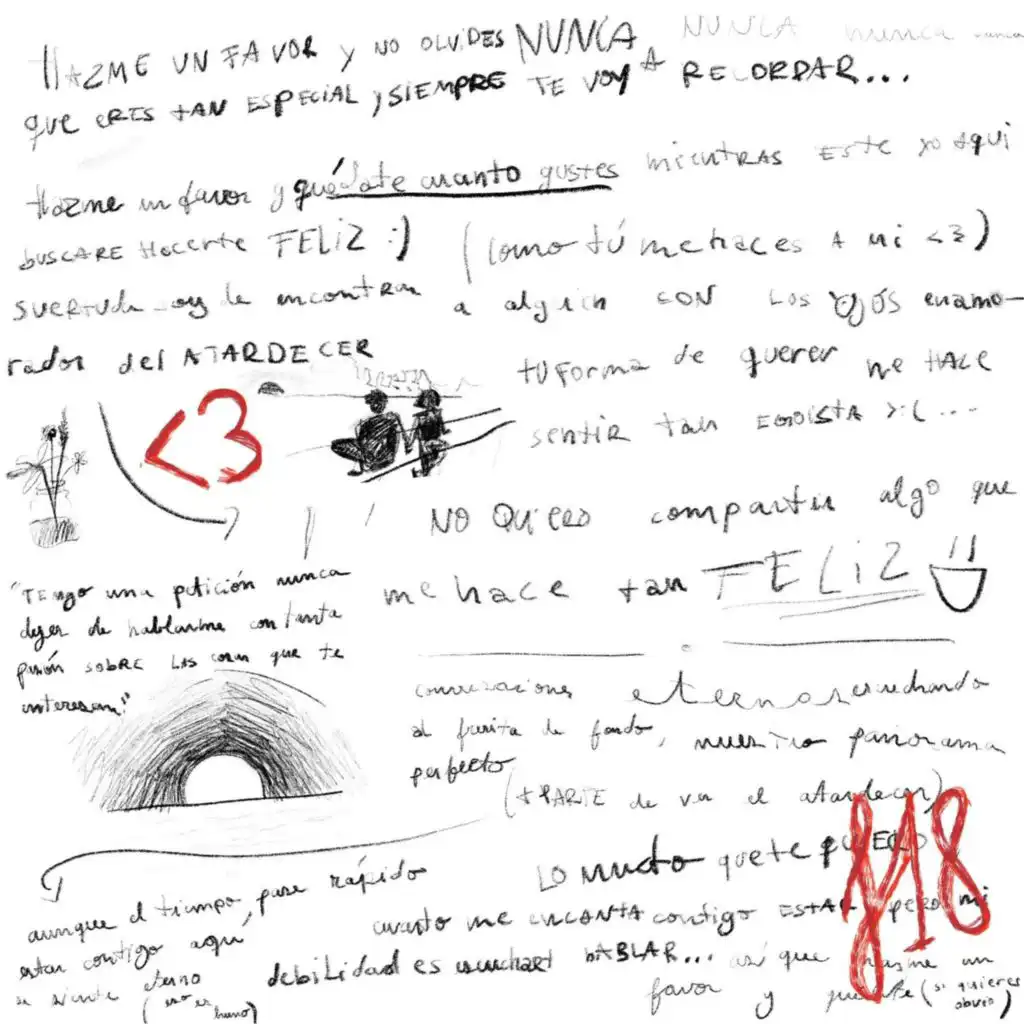 HAZME UN FAVOR Y NO OLVIDES NUNCA NUNCA nunca nunca
QUE ERES TAN ESPECIAL, SIEMPRE TE VOY A RECORDAR...
Hazme un favor y quédate cuanto gustes mientras este yo aqui
BUSCARE Hacerte FELIZ :) (como tú me haces A mi <3)
suertuda soy de encontrar a alguien CON LOS OJOS enamo-
rados del ATARDECER
tu forma de querer me HACE
sentir tan EGOISTA >:( ....
<3
NO QUIERO compartir algo que
me hace tan FELIZ
"TEngo una petición nunca
dejes de hablarme con tanta
pasión SOBRE LAS cosas que te
interesan."
conversaciones eternas escuchando
al furita de fondo, nuestro panorama
perfecto
(+ APARTE de ver el atardecer)
LO mucho que te QUIERO
cuanto me ENCANTA contigo ESTAR, pero mi
debilidad es escuchart HABLAR... así que hazme un
favor y quédate (si quieres
obvio)
818
aunque el tiempo pase rápido
estar contigo aquí,
se siente eterno
(eso es bueno)